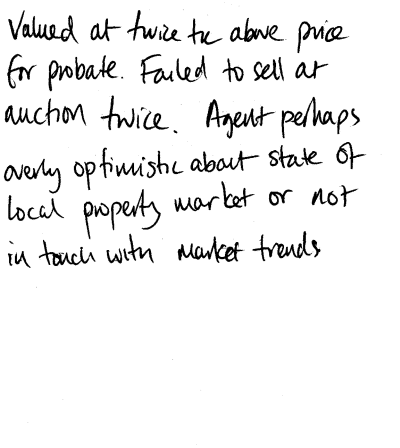 Valued at twice the above price
for probate. Failed to sell at
auction twice. Agent perhaps
overly optimistic about state of
local property market or not
in touch with market trends